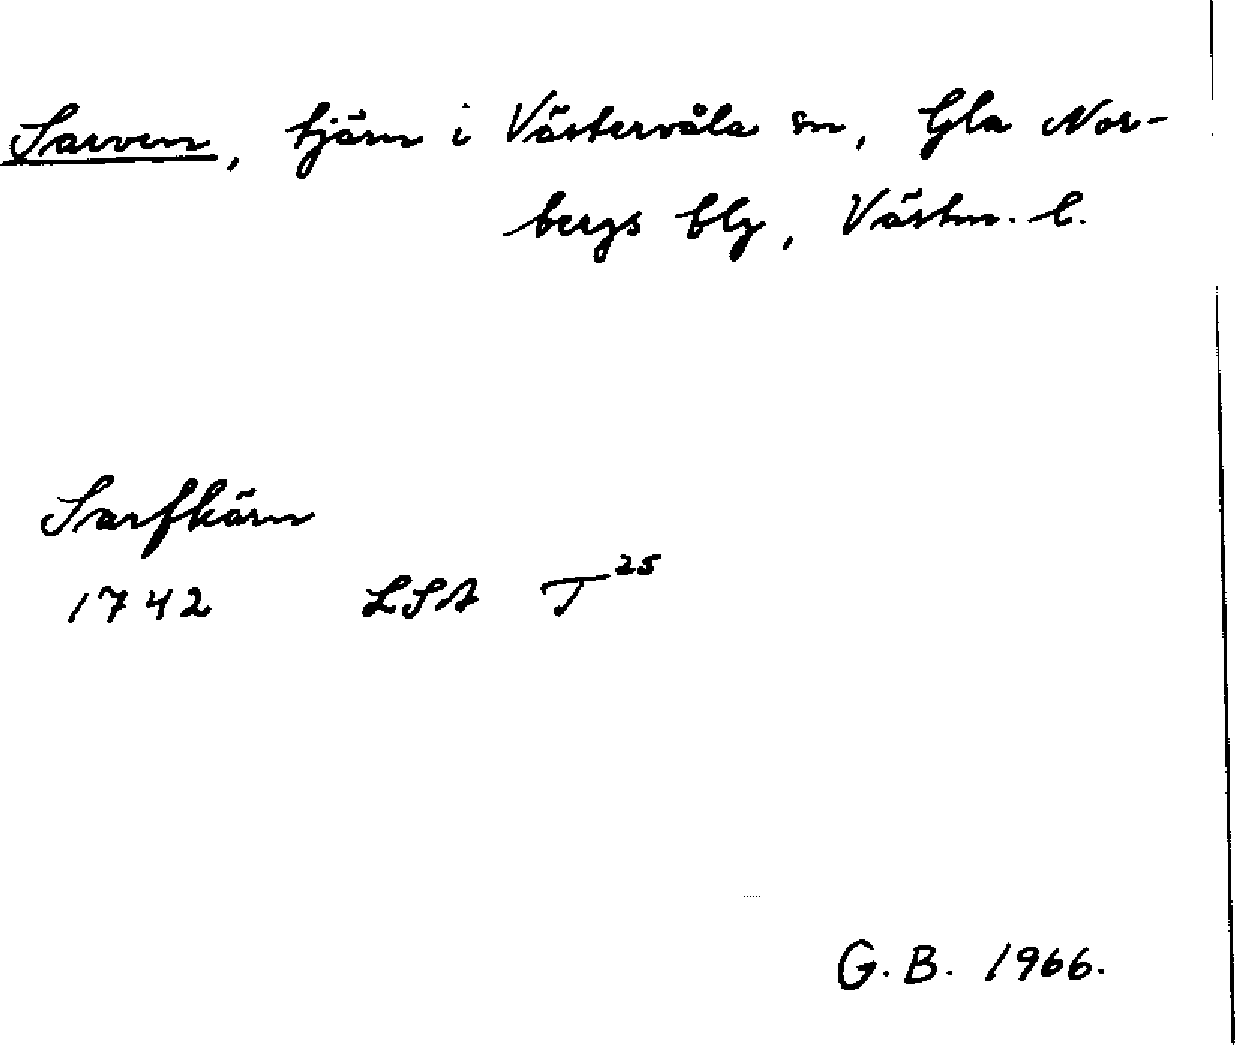 Sarven, tjärn i Västervåla sn, Gla Nor-
bergs blg, Västm. l.
Sarfkärn
1742 LSA T²⁵
G. B. 1966.